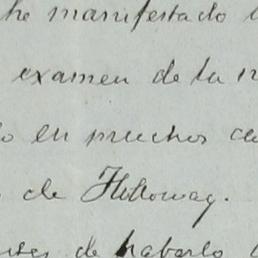 he manifestado
examen de la
en muchos
de Holloway.
de haberlo